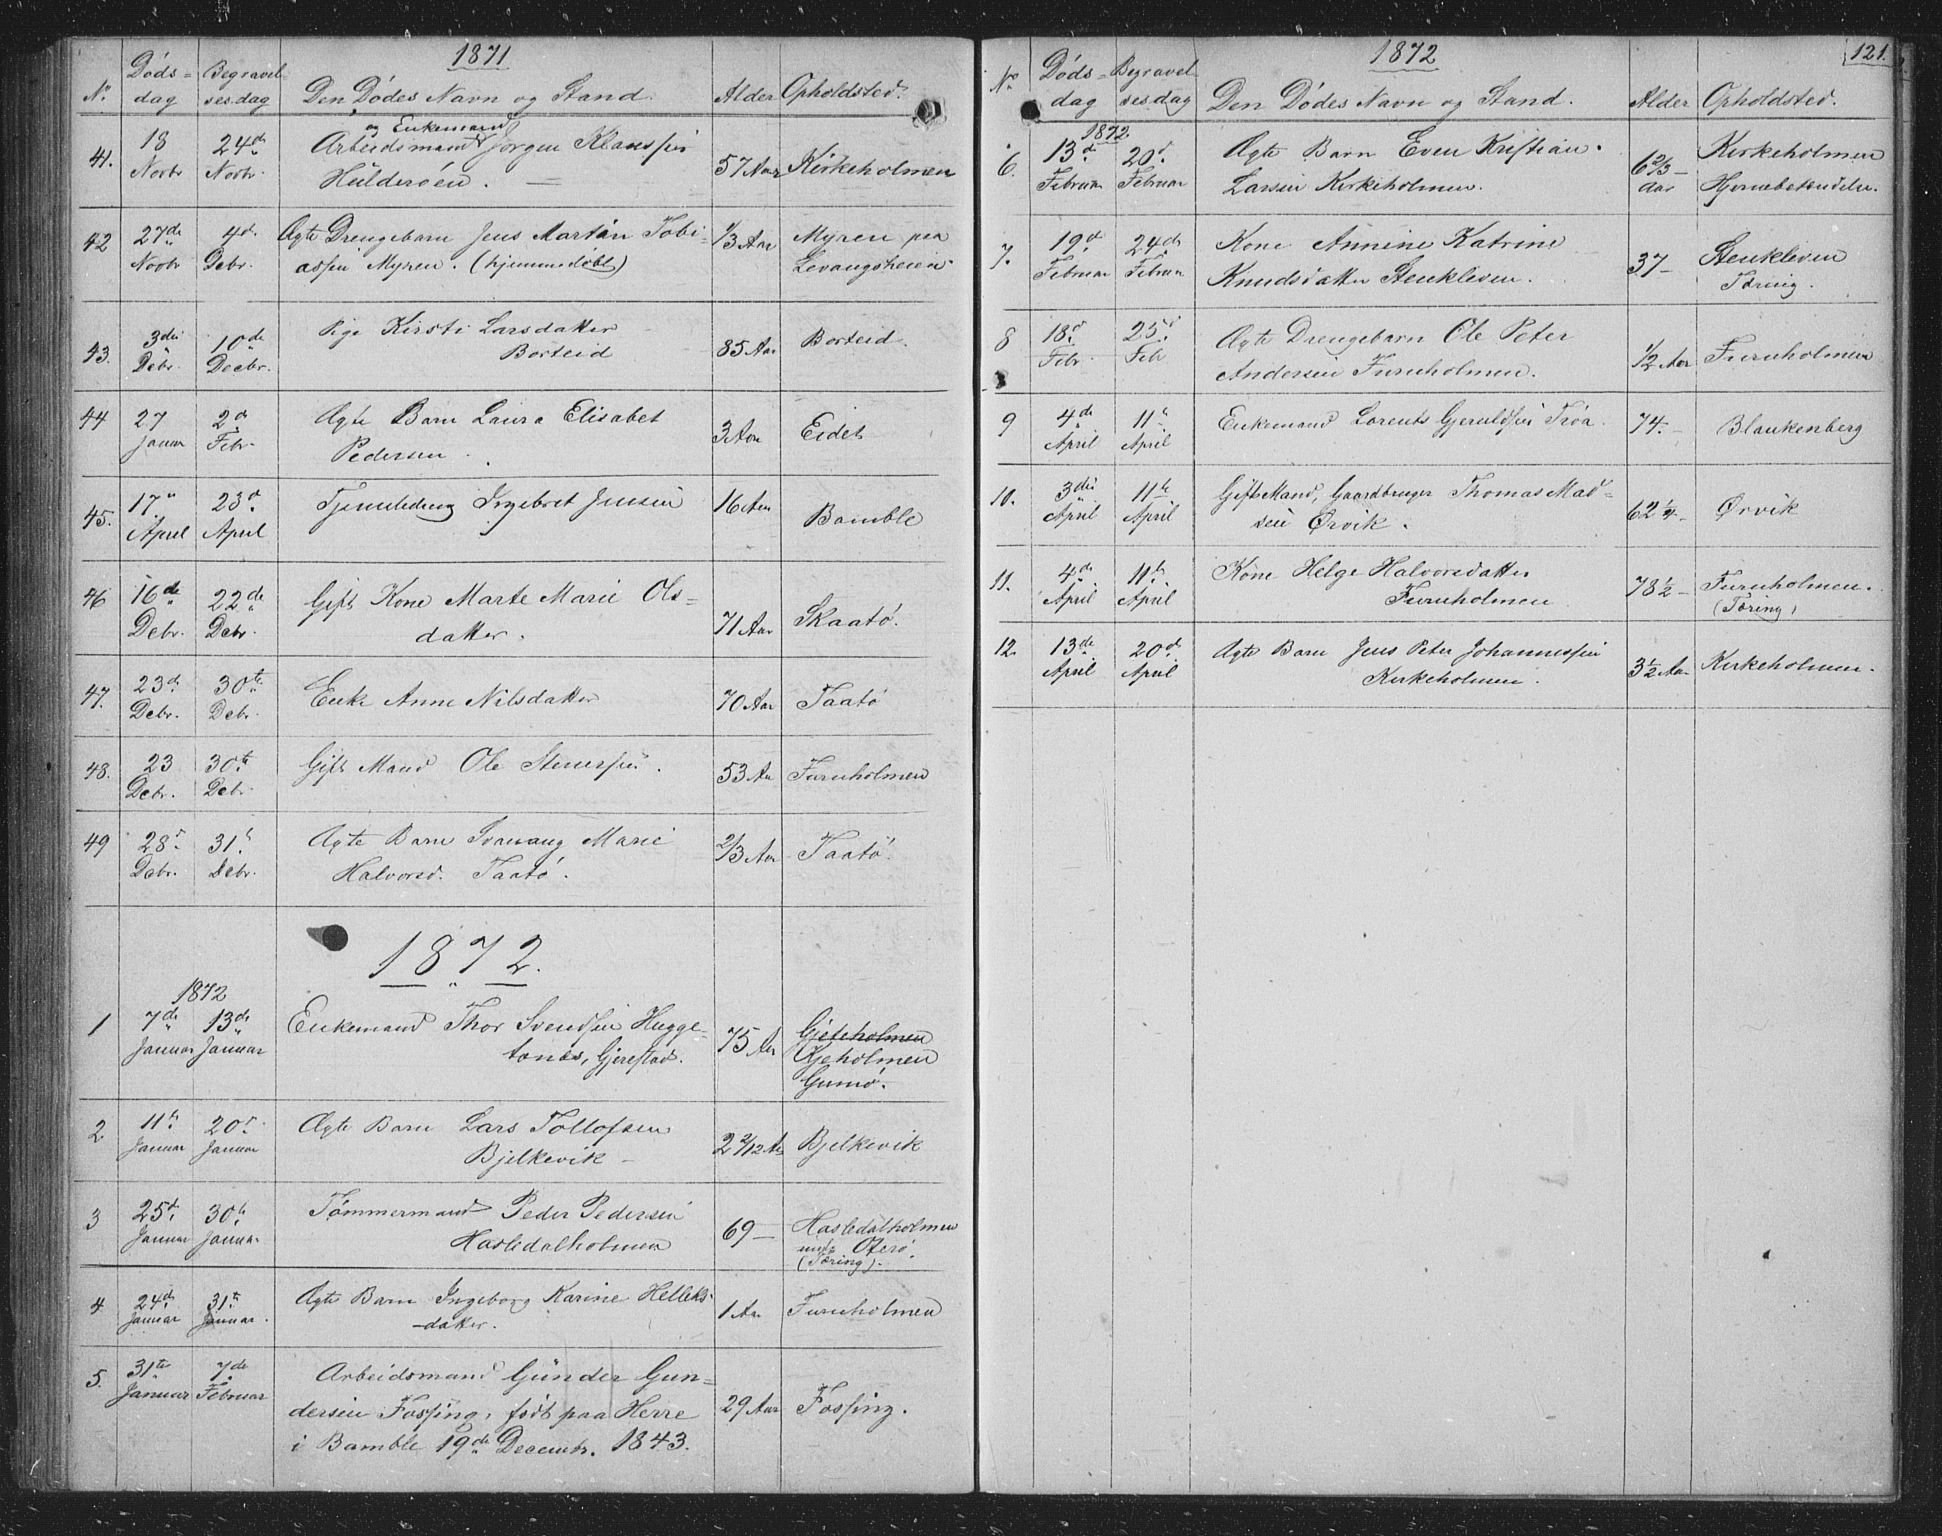 1871
No. Døds- dag Begravel- ses.dag Den Dødes Navn og Stand. Alder Opholdsted.
41. 18 Novbr 24de Novbr. og Enkemand Arbeidsmand Jørgen Klaussen 57 Aar Kirkeholmen
Hulderøen.
42 27de Novbr 4de Debr. Ægte Drengebarn Jens Martin Tobi- 1/3 Aar Myren paa
assen Myren. (hjemmedøbt) Levangsheien.
43. 3die Debr. 10de Decbr. Pige Kirsti Larsdatter 85 Aar Borteid.
Borteid
44 27 Januar 2d Febr. Ægte Barn Laura Elisabet 3 Aar Eidet
Pedersen.
45. 17. April 23d April Tjenestedreng Ingebret Jensen 16 Aar Bamble
46 16de Debr. 22de Debr. Gift Kone Marte Marie Ols- 71 Aar Skaatø.
datter.
47. 23d Debr. 30te Debr. Enke Anne Nilsdatter 70 Aar Taatø
48. 23 Debr. 30te Debr. Gift Mand Ole Stenersen. 53 Aar Furuholmen
49 28d Debr. 31t Debr. Ægte Barn Svanaug Marie 2/3 Aar Taatø.
Halvorsd. Taatø.
1872.
1872
1 7de Januar 13de Januar Enkemand Thor Svendsen Hugge- 75 Aar Gjeteholmen
tones, Gjerestad. Gjeholmen
Gumø.
2 11t Januar 20d Januar Ægte Barn Lars Tollofsen 2 2/12 Aar Bjelkevik
Bjelkevik
3 25d Januar 30t Januar Tømmermand Peder Pedersen 69 — Hasledalholmen
Hasledalholmen Oterø.
(Tæring).
4 24de Januar 31te Januar. Ægte Barn Ingeborg Karine Helleks- 1 Aar Furuholmen
datter.
5. 31te Januar 7de Februar Arbeidsmand Gunder Gun- 29 Aar Fossing.
dersen Fossing, født paa Herre
i Bamble 19de Decembr. 1843.
1872 121.
No Døds- dag Begravel- ses dag Den Dødes Navn og Stand. Alder Opholdsted.
1872
6. 13d Februar 20d Februar Ægte Barn Even Kristian 6 2/3 — Kirkeholmen
Larsen Kirkeholmen. Aar Hjernebetændelse.
7. 19d Februar 24de Februar Kone Annine Katrine 37 — Stenkleven
Knudsdatter Stenkleven. Tæring.
8 18d Febr. 25d Feb Ægte Drengebarn Ole Peter 1/2 Aar Furuholmen
Andersen Furuholmen.
9 4de April 11t April Enkemand Lorents Gjeruldsen Trøa 74. — Blankenberg
10. 3die April 11te April Gift Mand, Gaardbruger Thomas Mad- 62 1/4 — Ørvik
sen Ørvik.
11. 4de April 11t April Kone Helge Halvorsdatter 78 1/2 — Furuholmen.
Furuholmen (Tæring)
12. 13de April 20d April Ægte Barn Jens Peter Johannessen 3 1/2 Aar Kirkeholmen.
Kirkeholmen.